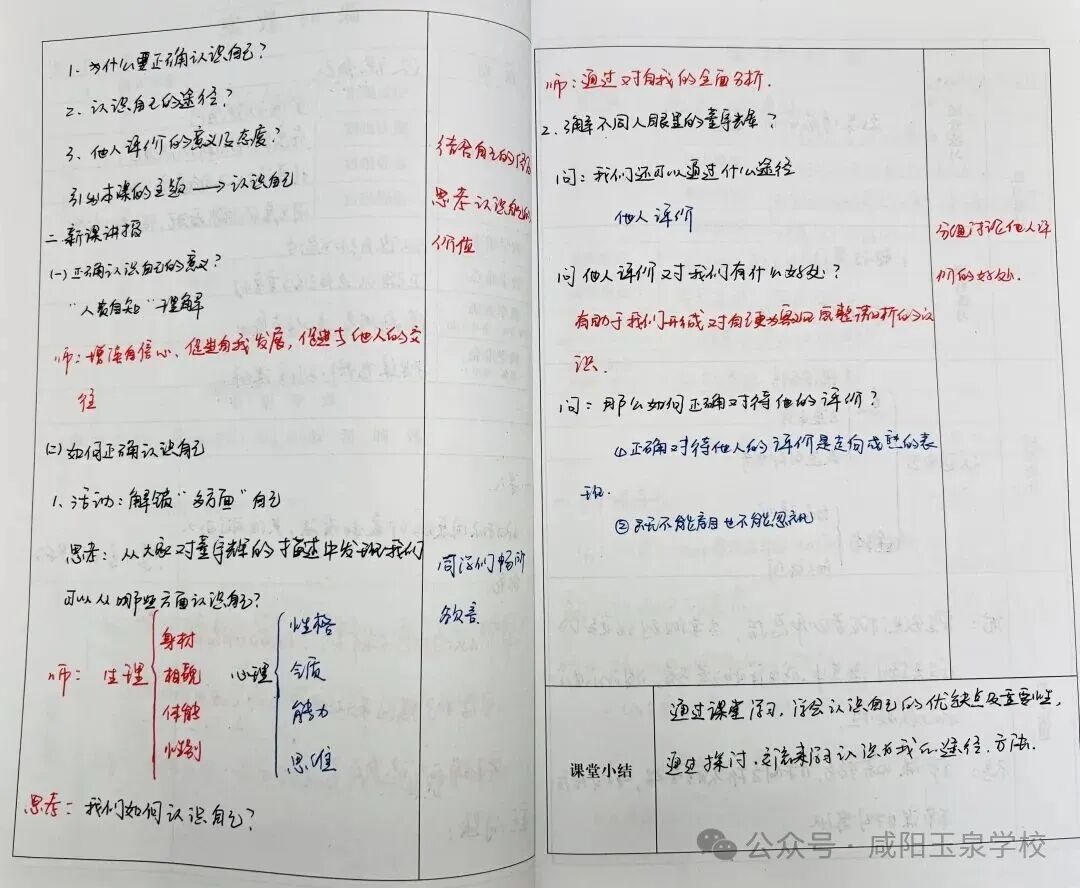 1. 为什么要正确认识自己?
2. 认识自己的途径?
3. 他人评价的意义及态度?
引出本课的主题 → 认识自己
二 新课讲授
(一) 正确认识自己的意义?
"人贵自知" 理解
师: 增强自信心、促进自我发展, 促进与他人的交
往
(二) 如何正确认识自己
1. 活动: 解锁 "多方面" 自己
思考: 从大家对董宇辉的描述中发现我们
可以从哪些方面认识自己?
师: 生理 身材 相貌 体能 性别
心理 性格 气质 能力 思维
思考: 我们如何认识自己?
结合自己的
思考认识自己的
价值
同学们畅所
欲言.
师: 通过对自我的全面分析.
2. 了解不同人眼里的董宇辉?
问: 我们还可以通过什么途径
他人评价
问 他人评价对我们有什么好处?
有助于我们形成对自己更为客观 完整清晰的认
识.
问: 那么如何正确对待他的评价?
① 正确对待他人的评价是走向成熟的表
现.
② 既不能盲目也不能忽视
分组讨论他人评
价的好处.
课堂小结
通过课堂学习, 学会认识自己的优缺点及重要性,
通过探讨、交流来学习认识自我的途径、方法.
公众号 · 咸阳玉泉学校